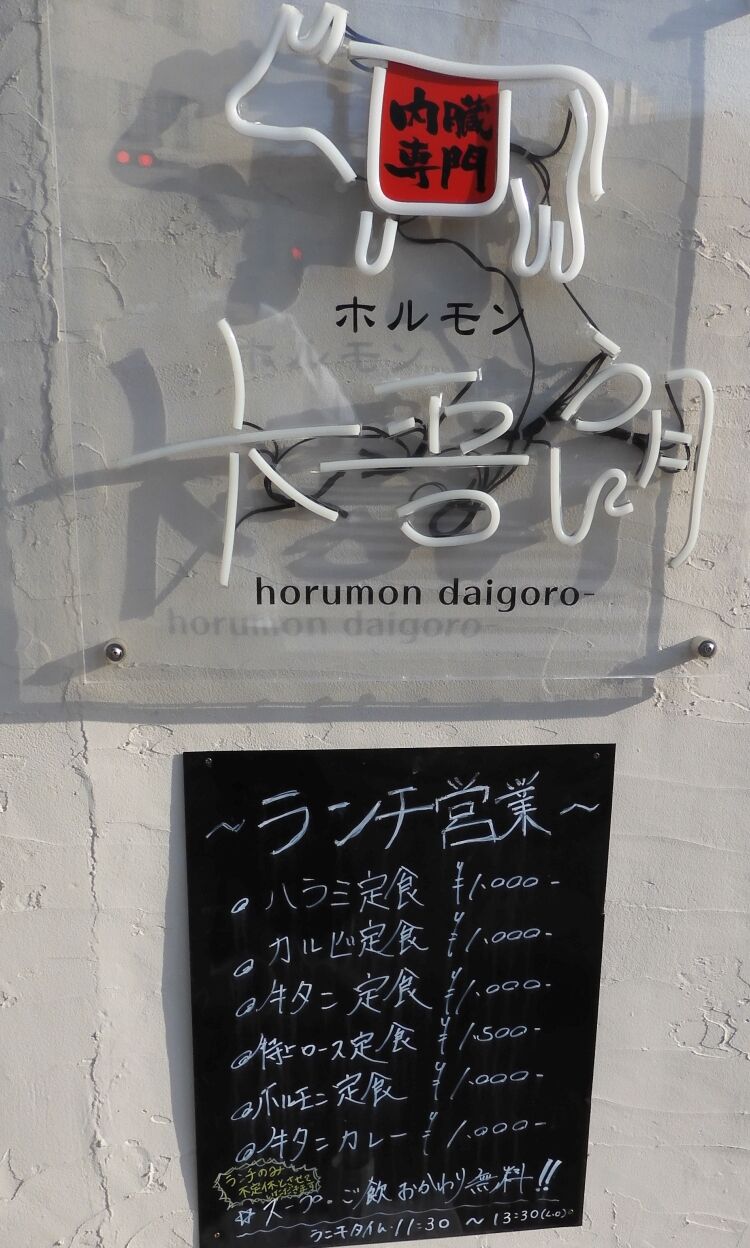 内臓
専門
ホルモン
大吾朗
horumon daigoro-
～ランチ営業～
ハラミ定食 ¥1.000-
カルビ定食 ¥1.000-
牛タン定食 ¥1.000-
特上ロース定食 ¥1.500-
ホルモン定食 ¥1.000-
牛タンカレー ¥1.000-
ランチのみ
不定休とさせて
いただきます
※スープ・ご飯おかわり無料!!
ランチタイム・11:30 ～ 13:30(L.O)